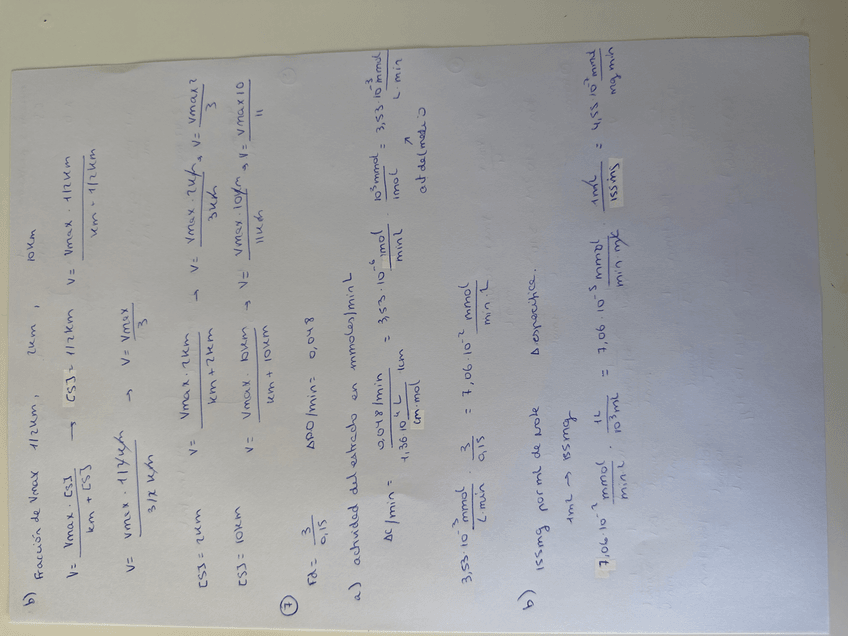 b) Fracción de Vmax 1/2Km, 2Km, 10Km
V= Vmax · [S] / Km + [S] → [S] = 1/2 Km V= Vmax · 1/2Km / Km + 1/2Km
V= Vmax · 1/2 Km / 3/2 Km → V= Vmax / 3
[S] = 2Km V= Vmax · 2Km / Km + 2Km → V= Vmax · 2Km / 3Km → V= Vmax 2 / 3
[S] = 10Km V= Vmax · 10Km / Km + 10Km → V= Vmax · 10Km / 11Km → V= Vmax 10 / 11
7 Fd= 3 / 0,15 ΔDO/min= 0,048
a) actividad del extracto en mmoles/min L
ΔC/min= 0,048/min / 1,36·10⁴ L / cm·mol 1cm = 3,53·10⁻⁶ mol / min L · 10³ mmol / 1mol = 3,53·10⁻³ mmol / L · min
act del medio
3,53·10⁻³ mmol / L min · 3 / 0,15 = 7,06·10⁻² mmol / min · L
b) 155mg por ml de A específica.
1mL → 155mg
7,06·10⁻² mmol / min L · 1L / 10³ mL = 7,06·10⁻⁵ mmol / min mL · 1mL / 155mg = 4,55·10⁻⁷ mmol / mg min